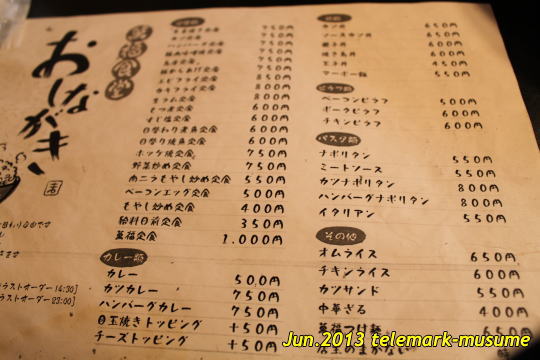 おしながき
定食類
ハンバーグ定食 750円
850円
800円
800円
600円
もつ煮定食 600円
すじ塩定食 600円
日替わり煮魚定食 600円
日替り焼魚定食 600円
ホッケ焼定食 750円
野菜炒め定食 750円
肉ニラもやし炒め定食 550円
ベーコンエッグ定食 500円
もやし炒め定食 400円
給料日前定食 350円
萬福定食 1.000円
カレー類
カレー 500円
カツカレー 750円
ハンバーグカレー 750円
目玉焼きトッピング +50円
チーズトッピング +50円
ラストオーダー 14:30]
ラストオーダー 23:00]
カツ丼 650円
ソースカツ丼 650円
親子丼 600円
焼き鳥丼 600円
玉子丼 450円
マーボー飯 550円
ピラフ類
ベーコンピラフ 500円
ポークピラフ 600円
チキンピラフ 600円
パスタ類
ナポリタン 550円
ミートソース 550円
カツナポリタン 800円
ハンバーグナポリタン 800円
イタリアン 550円
その他
オムライス 650円
チキンライス 600円
カツサンド 550円
中華ざる 400円
萬福つけ麺 650円
店主のまかない
Jun.2013 telemark-musume